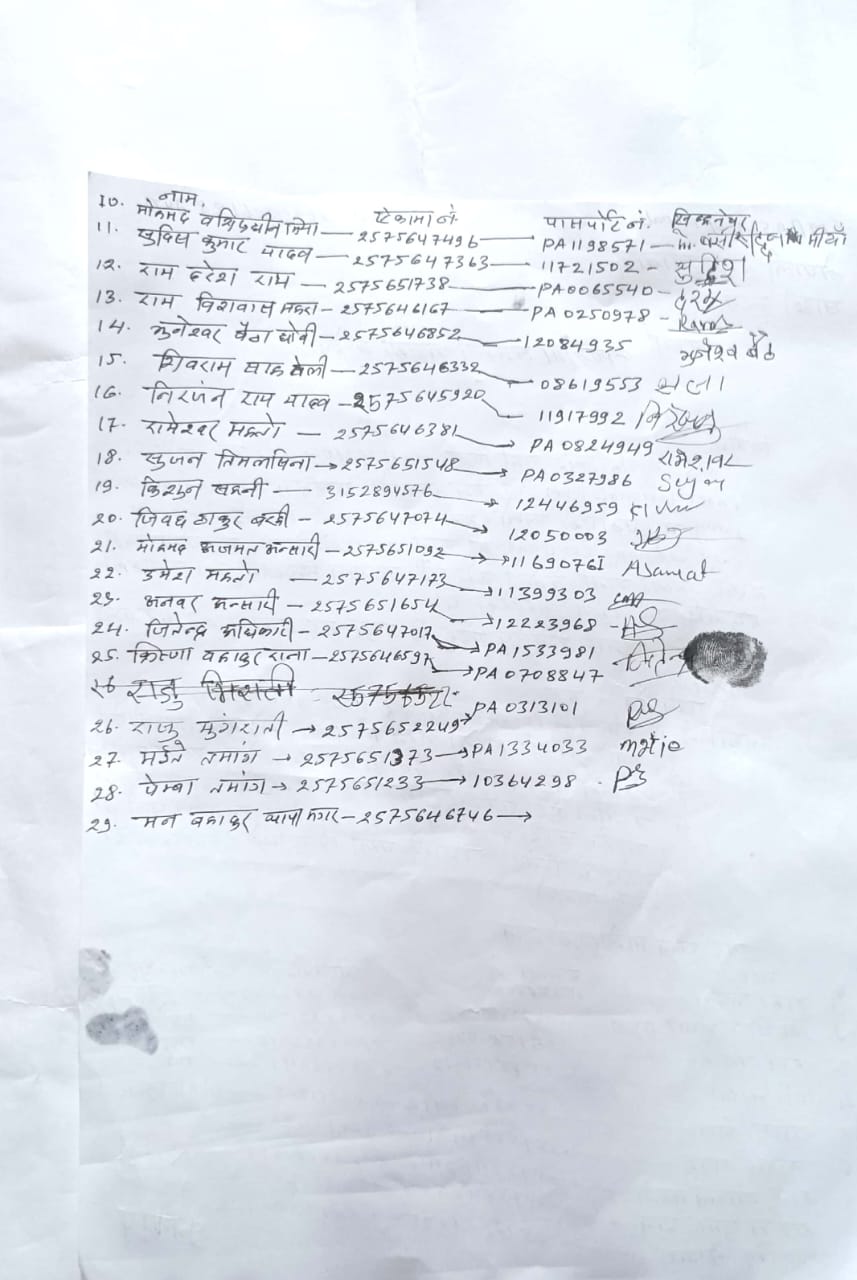 नाम. ऐकामा नं. पासपोर्ट नं. सिकनेचर
10. मोहमद वसिरुधीन मिया — 2575647496 — PA1198571 — m. बसीरुद्दिन मीयाँ
11. सुदिस कुमार यादव — 2575647363 → 11721502 - सुदिश
12. राम दरेश राम — 2575651738 — PA0065540 -
13. राम विशवास महरा — 2575646167 → PA0250978 -
14. मुनेश्वर बैठा धोबी — 2575646852 → 12084935 मुनेश्व बैठ
15. शिवराम साह तेली — 2575646332 → 08619553
16. निरंजन राय यादव — 2575645920 → 11917992
17. रामेश्वर महतो — 2575646381 → PA0824949
18. सुजन तिमलसिना → 2575651548 → PA0327986 Sujan
19. किशुन सहनी — 3152894576 → 12446959
20. जिवछ ठाकुर बरही — 2575647074 → 12050003
21. मोहमद अजमत अन्सारी — 2575651092 → 11690761 Asamat
22. उमेश महतो — 2575647173 → 11399303
23. अनवर अन्सारी — 2575651654 → 12223968
24. जितेन्द्र अधिकारी — 2575647017 → PA1533981
25. क्रिस्णा बहादुर राना — 2575646597 → PA0708847
26. राजु मुंगराती → 2575652249 → PA0313101
27. मईते तमांग → 2575651373 → PA1334033
28. पेम्बा तमांग → 2575651233 → 10364298
29. मन बहादुर थापा मगर — 2575646746 →